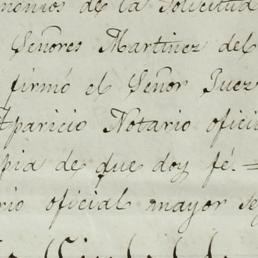 de la Solicitud
Señores Martinez del
firmó el Señor Juez
Aparicio Notario ofici
pia de que doy fé.=
rio oficial mayor se